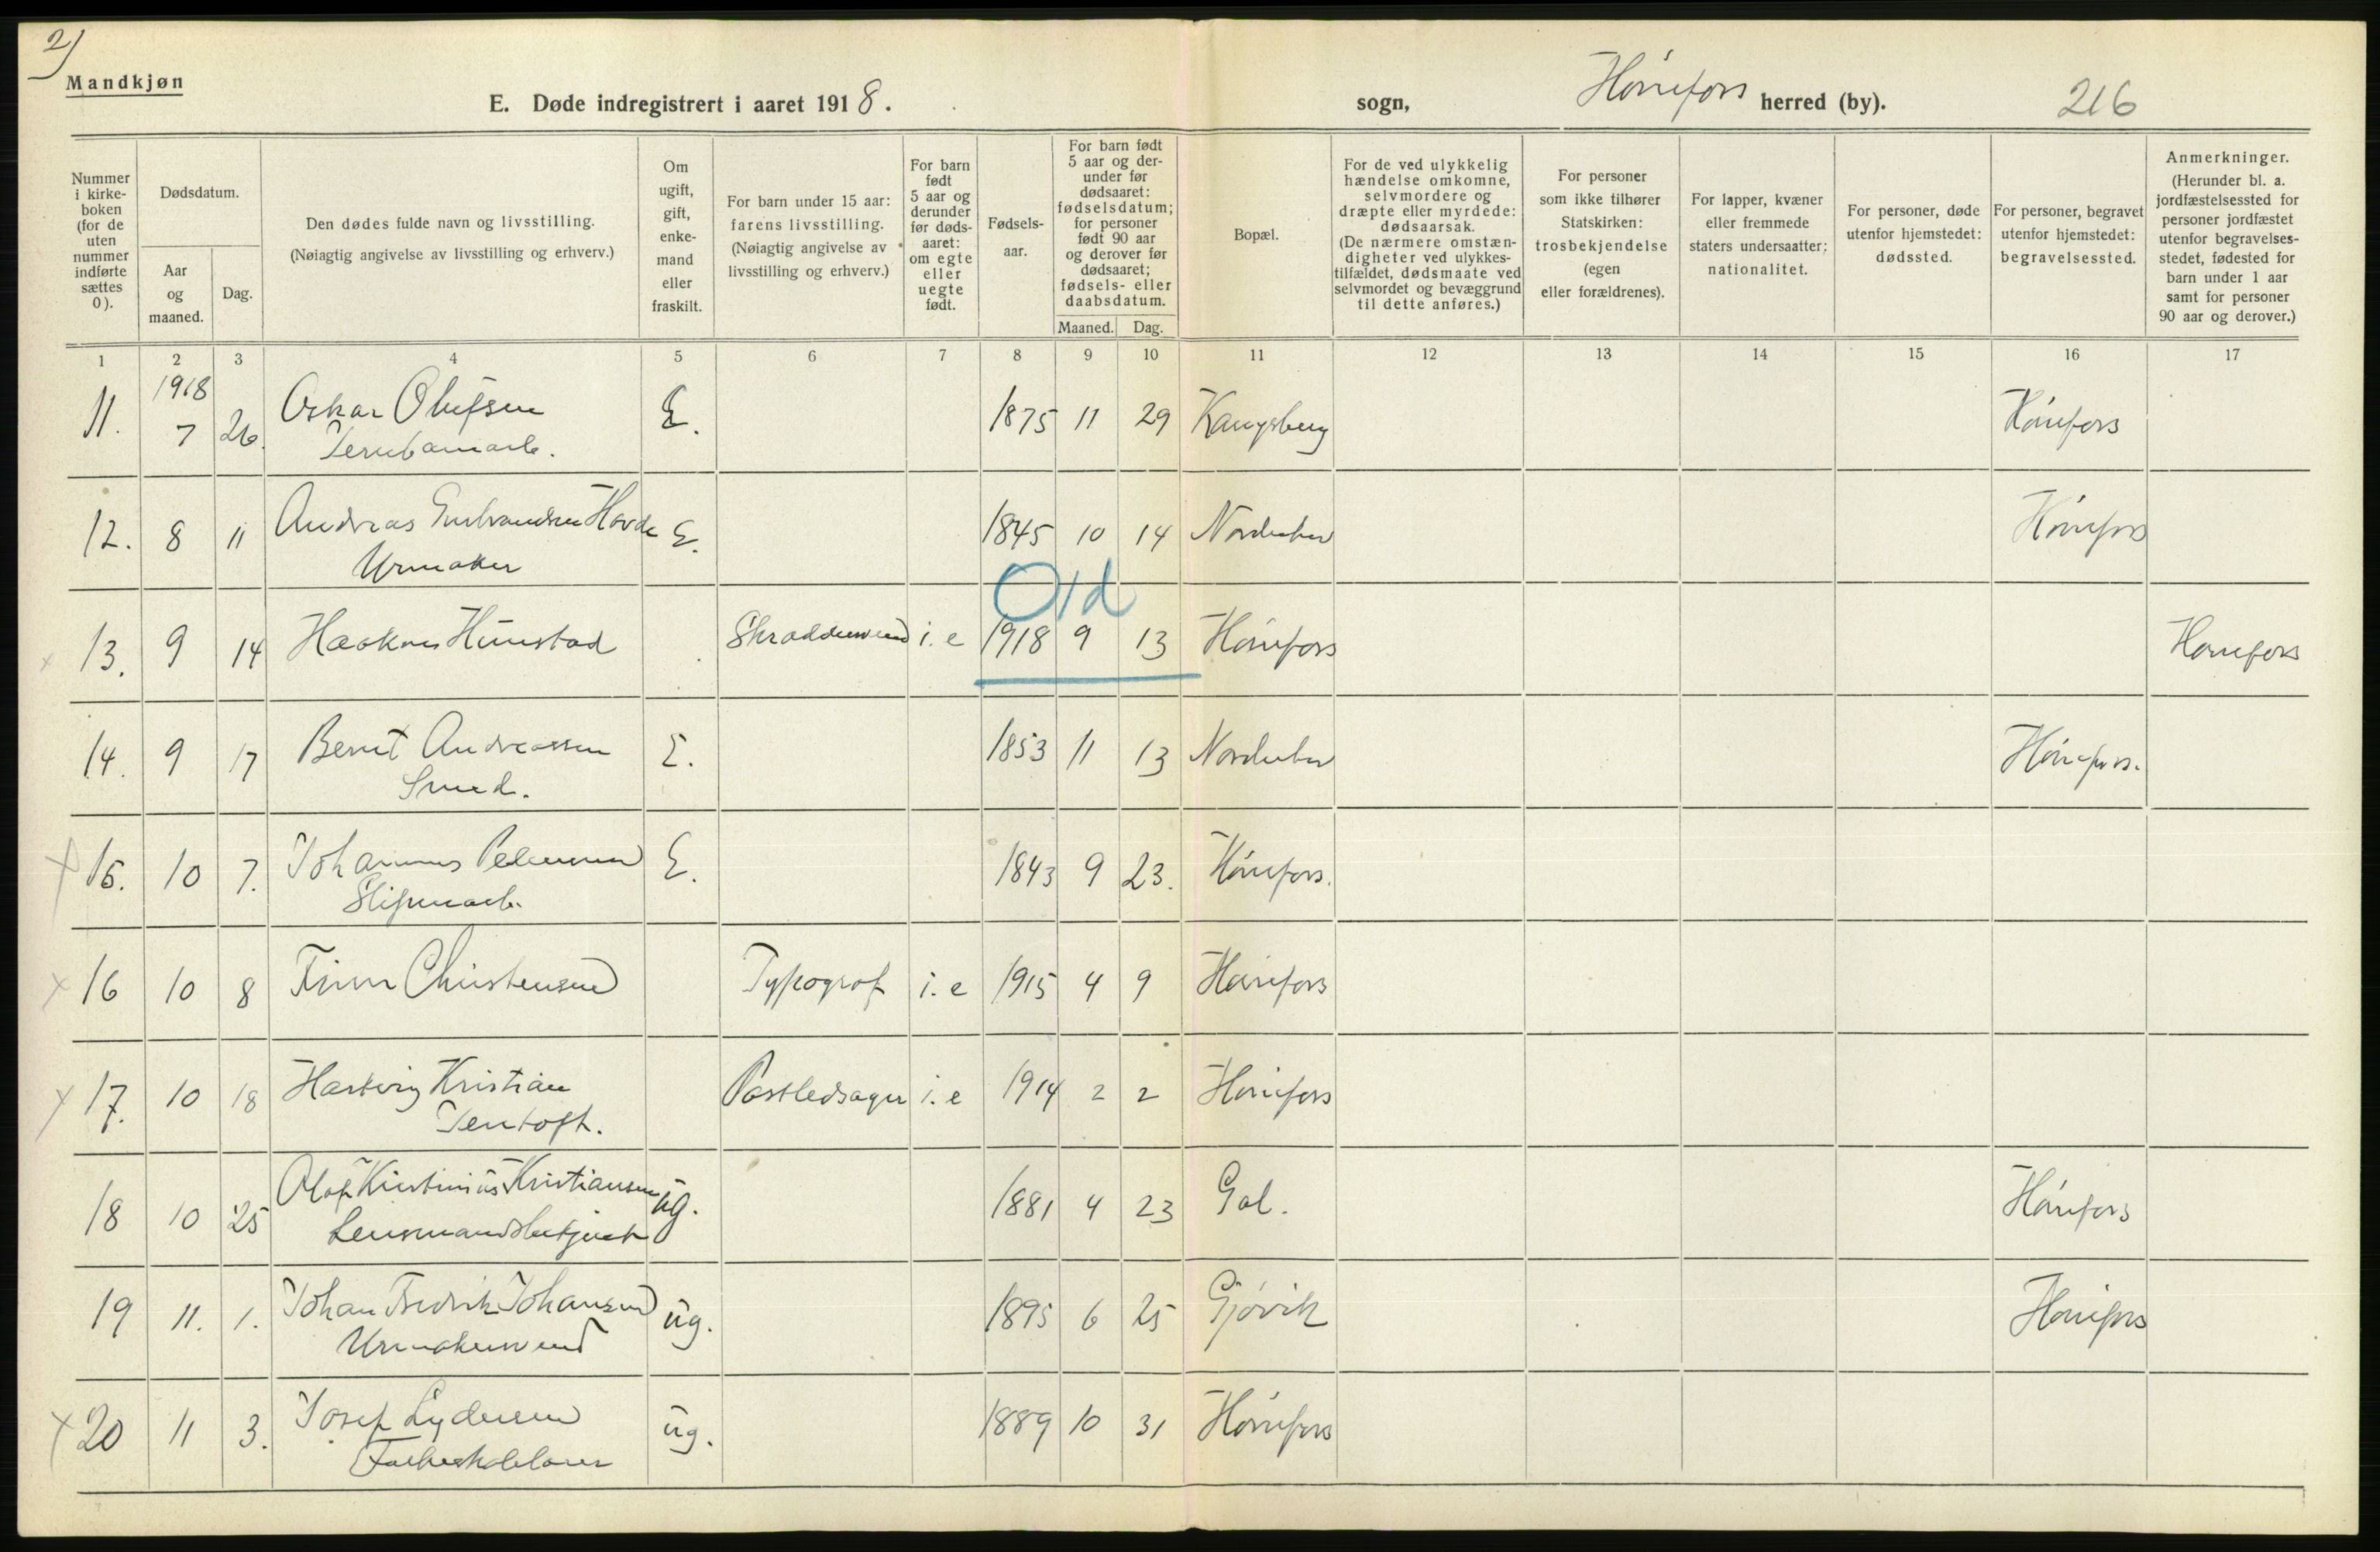 2)
Mandkjøn
E. Døde indregistrert i aaret 1918.
sogn,
Hønefoss herred (by).
216
Nummer i kirkeboken (for de uten nummer indførte sættes 0).
Dødsdatum.
Aar og maaned.
Dag.
Den dødes fulde navn og livsstilling.
(Nøiagtig angivelse av livsstilling og erhverv.)
Om ugift, gift, enkemand eller fraskilt.
For barn under 15 aar: farens livsstilling. (Nøiagtig angivelse av livsstilling og erhverv.)
For barn født 5 aar og derunder før dødsaaret: om egte eller uegte født.
Fødselsaar.
For barn født 5 aar og derunder før dødsaaret: fødselsdatum; for personer født 90 aar og derover før dødsaaret; fødsels- eller daabsdatum.
Maaned. Dag.
Bopæl.
For de ved ulykkelig hændelse omkomne, selvmordere og dræpte eller myrdede: dødsaarsak. (De nærmere omstændigheter ved ulykkestilfældet, dødsmaate ved selvmordet og bevæggrund til dette anføres.)
For personer som ikke tilhører Statskirken: trosbekjendelse (egen eller forældrenes).
For lapper, kvæner eller fremmede staters undersaatter: nationalitet.
For personer, døde utenfor hjemstedet: dødssted.
For personer, begravet utenfor hjemstedet: begravelsessted.
Anmerkninger. (Herunder bl. a. jordfæstelsessted for personer jordfæstet utenfor begravelsesstedet, fødested for barn under 1 aar samt for personer 90 aar og derover.)
1 2 3 4 5 6 7 8 9 10 11 12 13 14 15 16 17
1918
11. 7 26. Oskar Olufsen E. 1875 11 29 Kongsberg Hønefoss
Jernbanearb.
12. 8 11 Andreas Gulbrandsen Hovde E. 1845 10 14 Norderhov Hønefoss
Urmaker
Old
13. 9 14 Haakon Hunstad Skræddersvend i. e 1918 9 13 Hønefoss Hønefoss
14. 9 17 Bernt Andreassen E. 1853 11 13 Norderhov Hønefoss.
Smed.
15. 10 7. Johannes E. 1843 9 23. Hønefoss.
Sliperiarb.
16 10 8 Finn Christensen Typograf i. e 1915 4 9 Hønefoss
17. 10 18 Hartvig Kristian Postledsager i. e 1914 2 2 Hønefoss
Jentoft.
18 10 25 Olaf Kristinius Kristiansen ug. 1881 4 23 Gol. Hønefoss
Lensmandsbetjent
19 11. 1. Johan Fredrik Johansen ug. 1895 6 25 Gjøvik Hønefoss
Urmakersvend
20 11 3. Josef Lydersen ug. 1889 10 31 Hønefoss
Folkeskolelærer